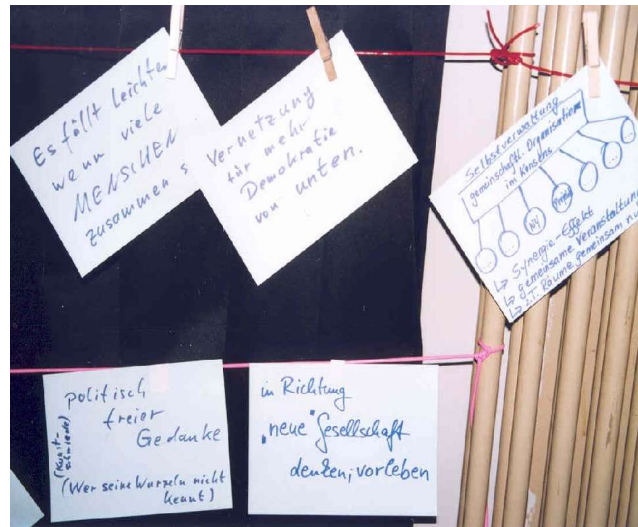 Es fällt leichter
wenn viele
MENSCHEN
zusammen s
Vernetzung
für mehr
Demokratie
von unten.
Selbstverwaltung
gemeinschaftl. Organisation
im Konsens
NV
↳ Synergie-Effekt
↳ gemeinsame Veranstaltung
↳ z.T. Räume gemeinsam nu
politisch
freier
Gedanke
(Wer seine Wurzeln nicht
kennt)
in Richtung
"neue" Gesellschaft
denken, vorleben